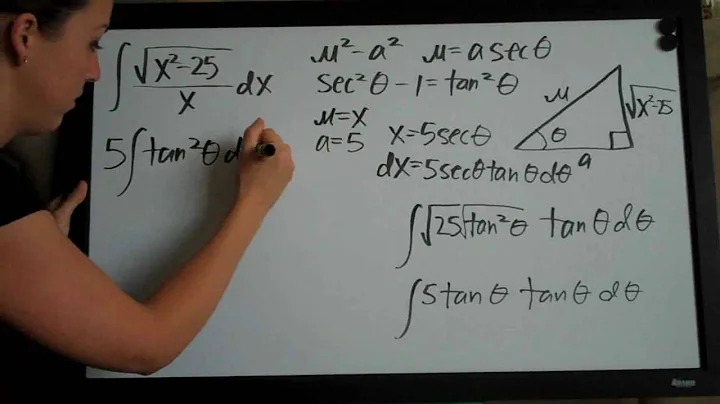 ∫ √(x²-25) / x dx
u²-a² u=a secθ
sec²θ-1=tan²θ
u=x
a=5 x=5secθ
dx=5secθtanθdθ
u √x²-25
θ
a
5∫tan²θ d
∫√25√tan²θ tanθdθ
∫5tanθ tanθdθ